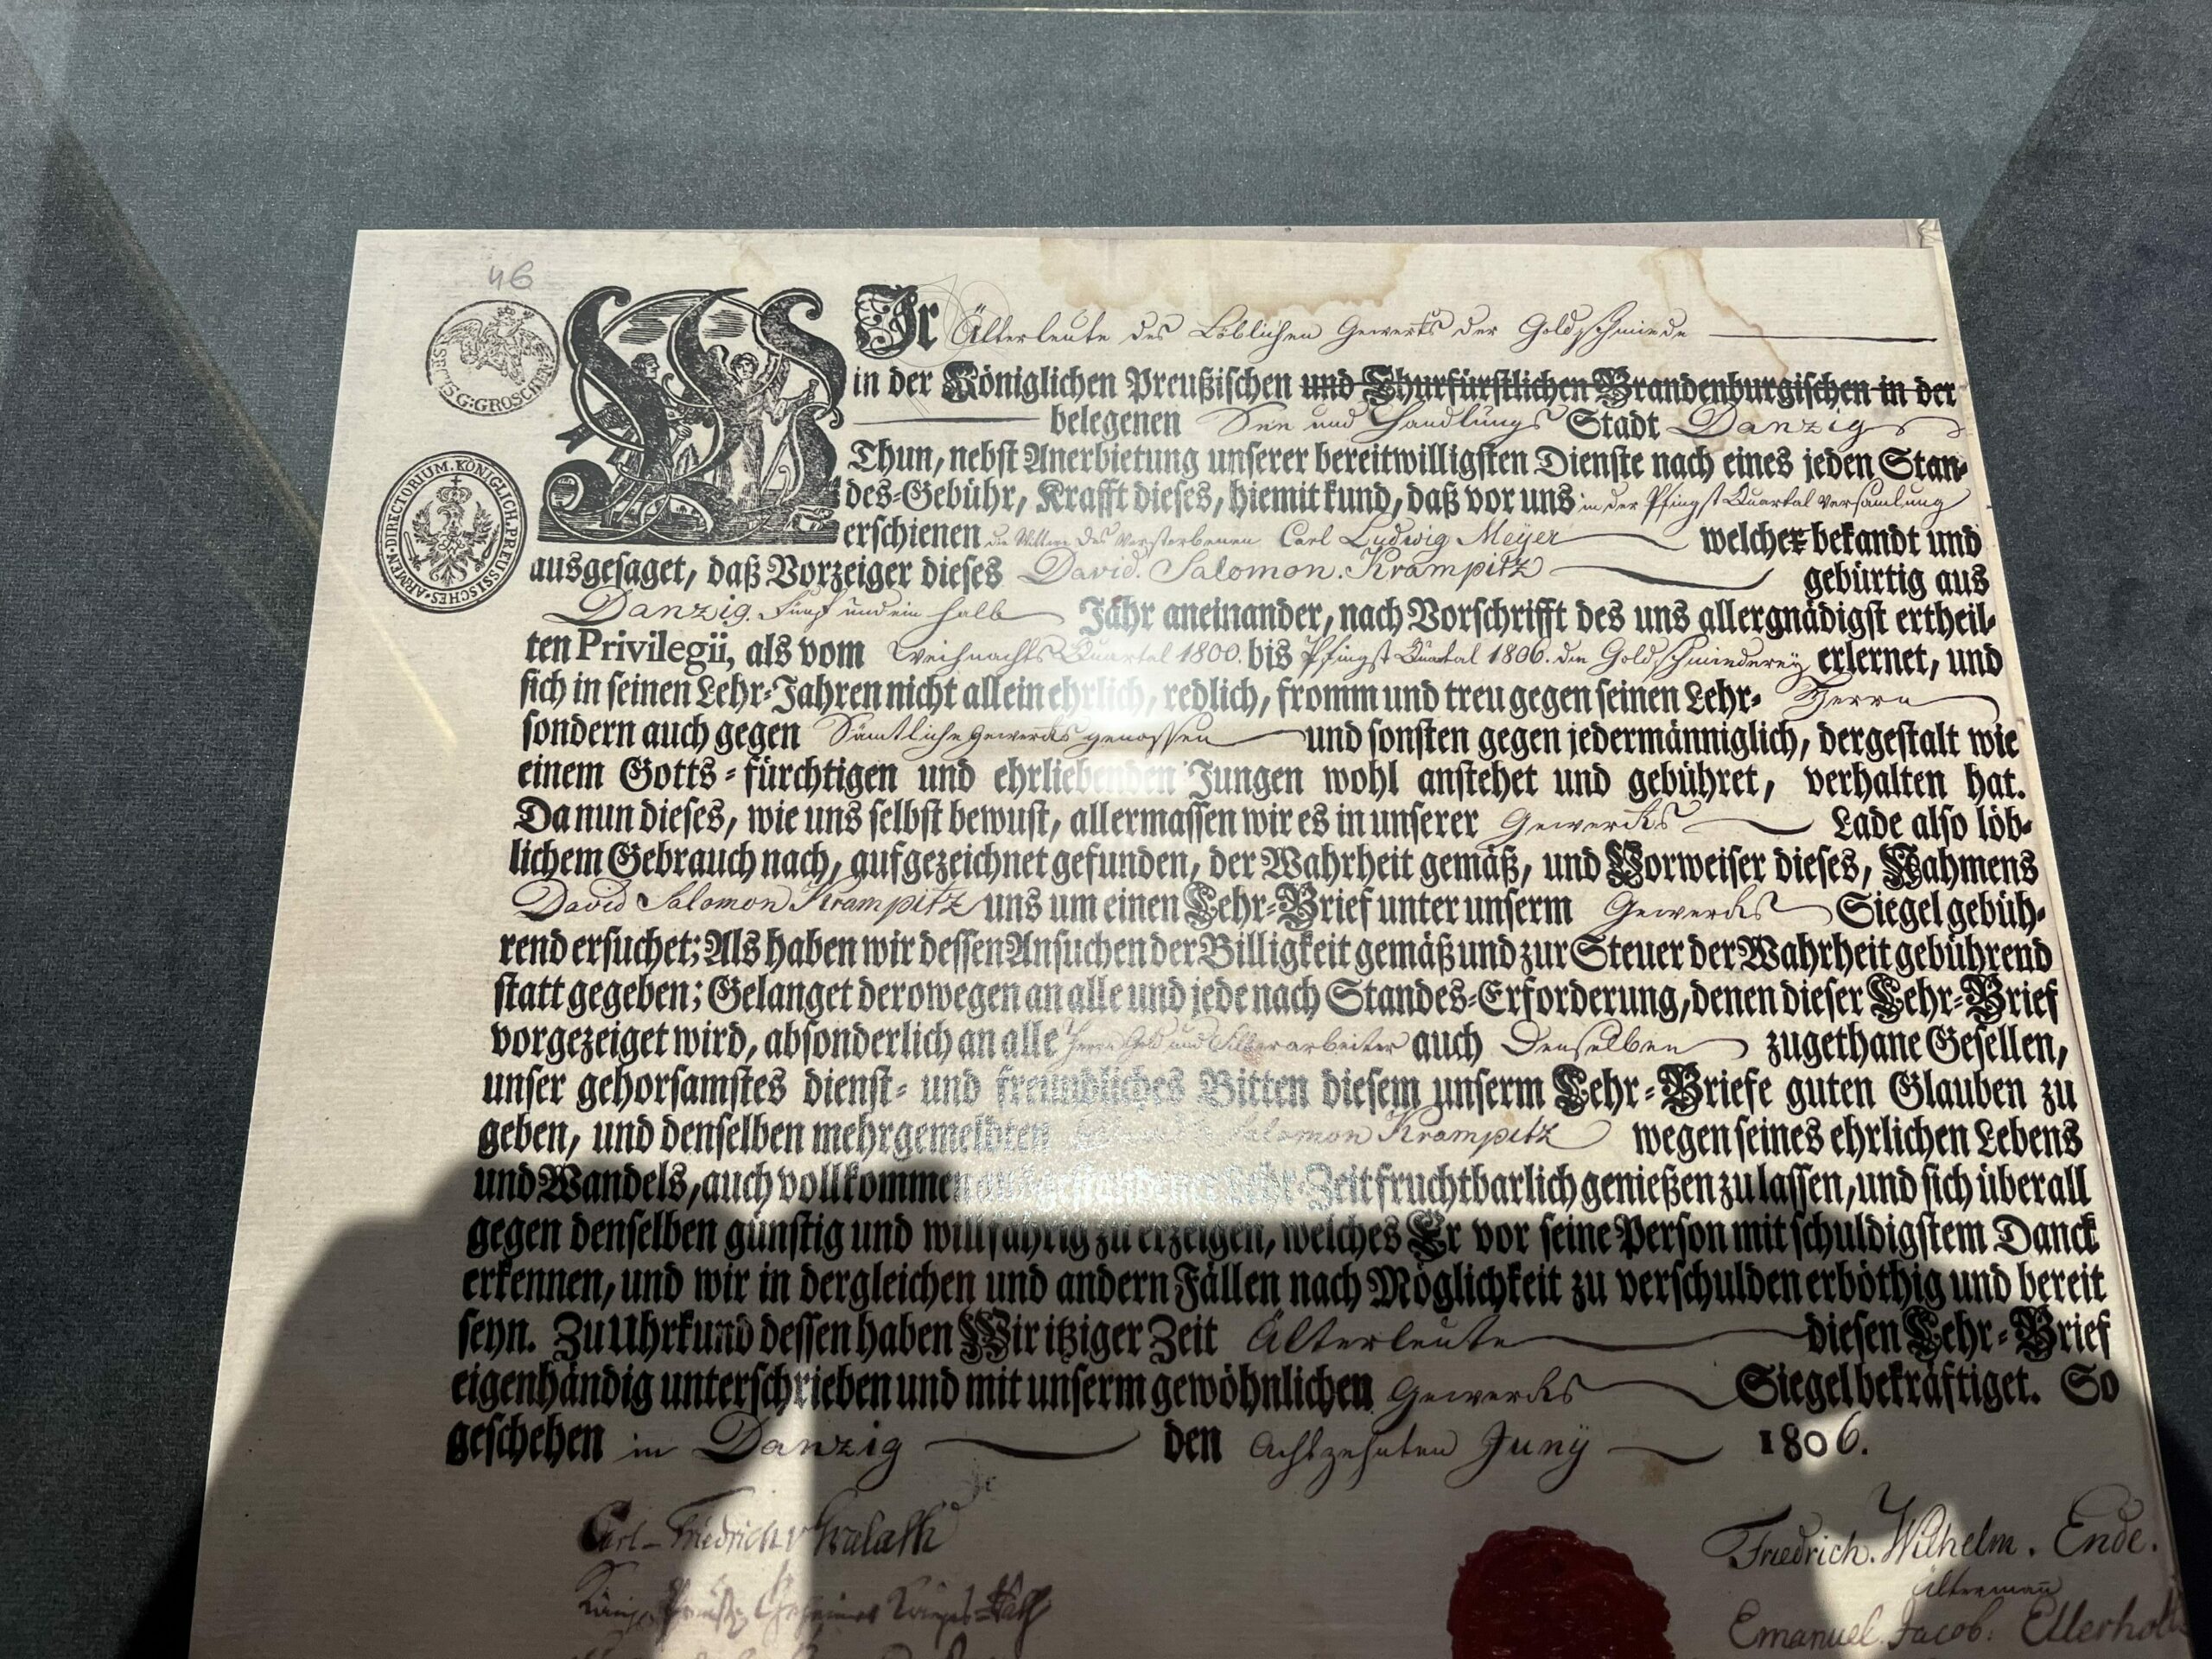 46
SECHS G: GROSCHEN
ARMEN-DIRECTORIUM. KÖNIGLICH. PREUSSISCHES.
WIr Älterleute des Löblichen Gewerks der Goldschmiede
in der Königlichen Preußischen und Churfürstlichen Brandenburgischen in der
belegenen See und Handlungs Stadt Danzig
Thun, nebst Anerbietung unserer bereitwilligsten Dienste nach eines jeden Stan-
des-Gebühr, Krafft dieses, hiemit kund, daß vor uns in der Pfingst Quartal Versamlung
erschienen die Wittwe des Verstorbenen Carl Ludwig Meÿer welcher bekandt und
ausgesaget, daß Vorzeiger dieses David. Salomon. Krampitz gebürtig aus
Danzig. Fünf und ein halb Jahr aneinander, nach Vorschrifft des uns allergnädigst ertheil-
ten Privilegii, als vom Weihnachts Quartal 1800. bis Pfingst Quartal 1806. die Goldschmiederey erlernet, und
sich in seinen Lehr-Jahren nicht allein ehrlich, redlich, fromm und treu gegen seinen Lehr- Herrn
sondern auch gegen Sämtliche Gewerksgenossen und sonsten gegen jedermänniglich, dergestalt wie
einem Gotts-fürchtigen und ehrliebenden Jungen wohl anstehet und gebühret, verhalten hat.
Da nun dieses, wie uns selbst bewust, allermassen wir es in unserer Gewerks Lade also löb-
lichem Gebrauch nach, aufgezeichnet gefunden, der Wahrheit gemäß, und Vorweiser dieses, Nahmens
David Salomon Krampitz uns um einen Lehr-Brief unter unserm Gewerks Siegel gebüh-
rend ersuchet; Als haben wir dessen Ansuchen der Billigkeit gemäß und zur Steuer der Wahrheit gebührend
statt gegeben; Gelanget derowegen an alle und jede nach Standes-Erforderung, denen dieser Lehr-Brief
vorgezeiget wird, absonderlich an alle Herrn Gold und Silberarbeiter auch Denselben zugethane Gesellen,
unser gehorsamstes dienst- und freundliches Bitten diesem unserm Lehr-Briefe guten Glauben zu
geben, und denselben mehrgemeldten Salomon Krampitz wegen seines ehrlichen Lebens
und Wandels, auch vollkommen ausgestandener Lehr-Zeit fruchtbarlich genießen zu lassen, und sich überall
gegen denselben günstig und willfährig zu erzeigen, welches Er vor seine Person mit schuldigstem Danck
erkennen, und wir in dergleichen und andern Fällen nach Möglichkeit zu verschulden erböthig und bereit
seyn. Zu Uhrkund dessen haben Wir itziger Zeit Älterleute diesen Lehr-Brief
eigenhändig unterschrieben und mit unserm gewöhnlichen Gewerks Siegel bekräftiget. So
geschehen in Danzig den Achtzehnten Junÿ 1806.
Carl Friedrich v Gralath
Friedrich. Wilhelm. Ende.
Älterman
Emanuel. Jacob: Ellerholtz